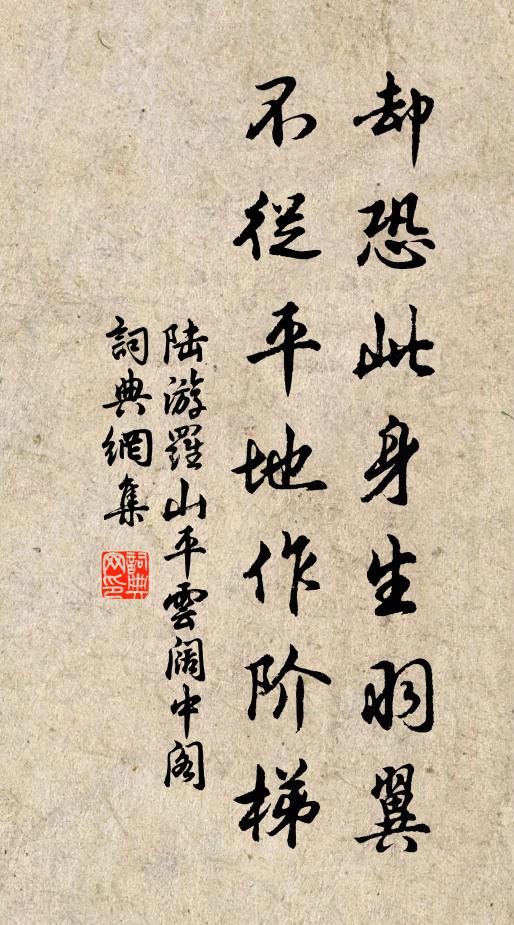 却恐此身生羽翼
不從平地作阶梯
陆游羅山平雲阔中阁
詞典網集
詞典
网印